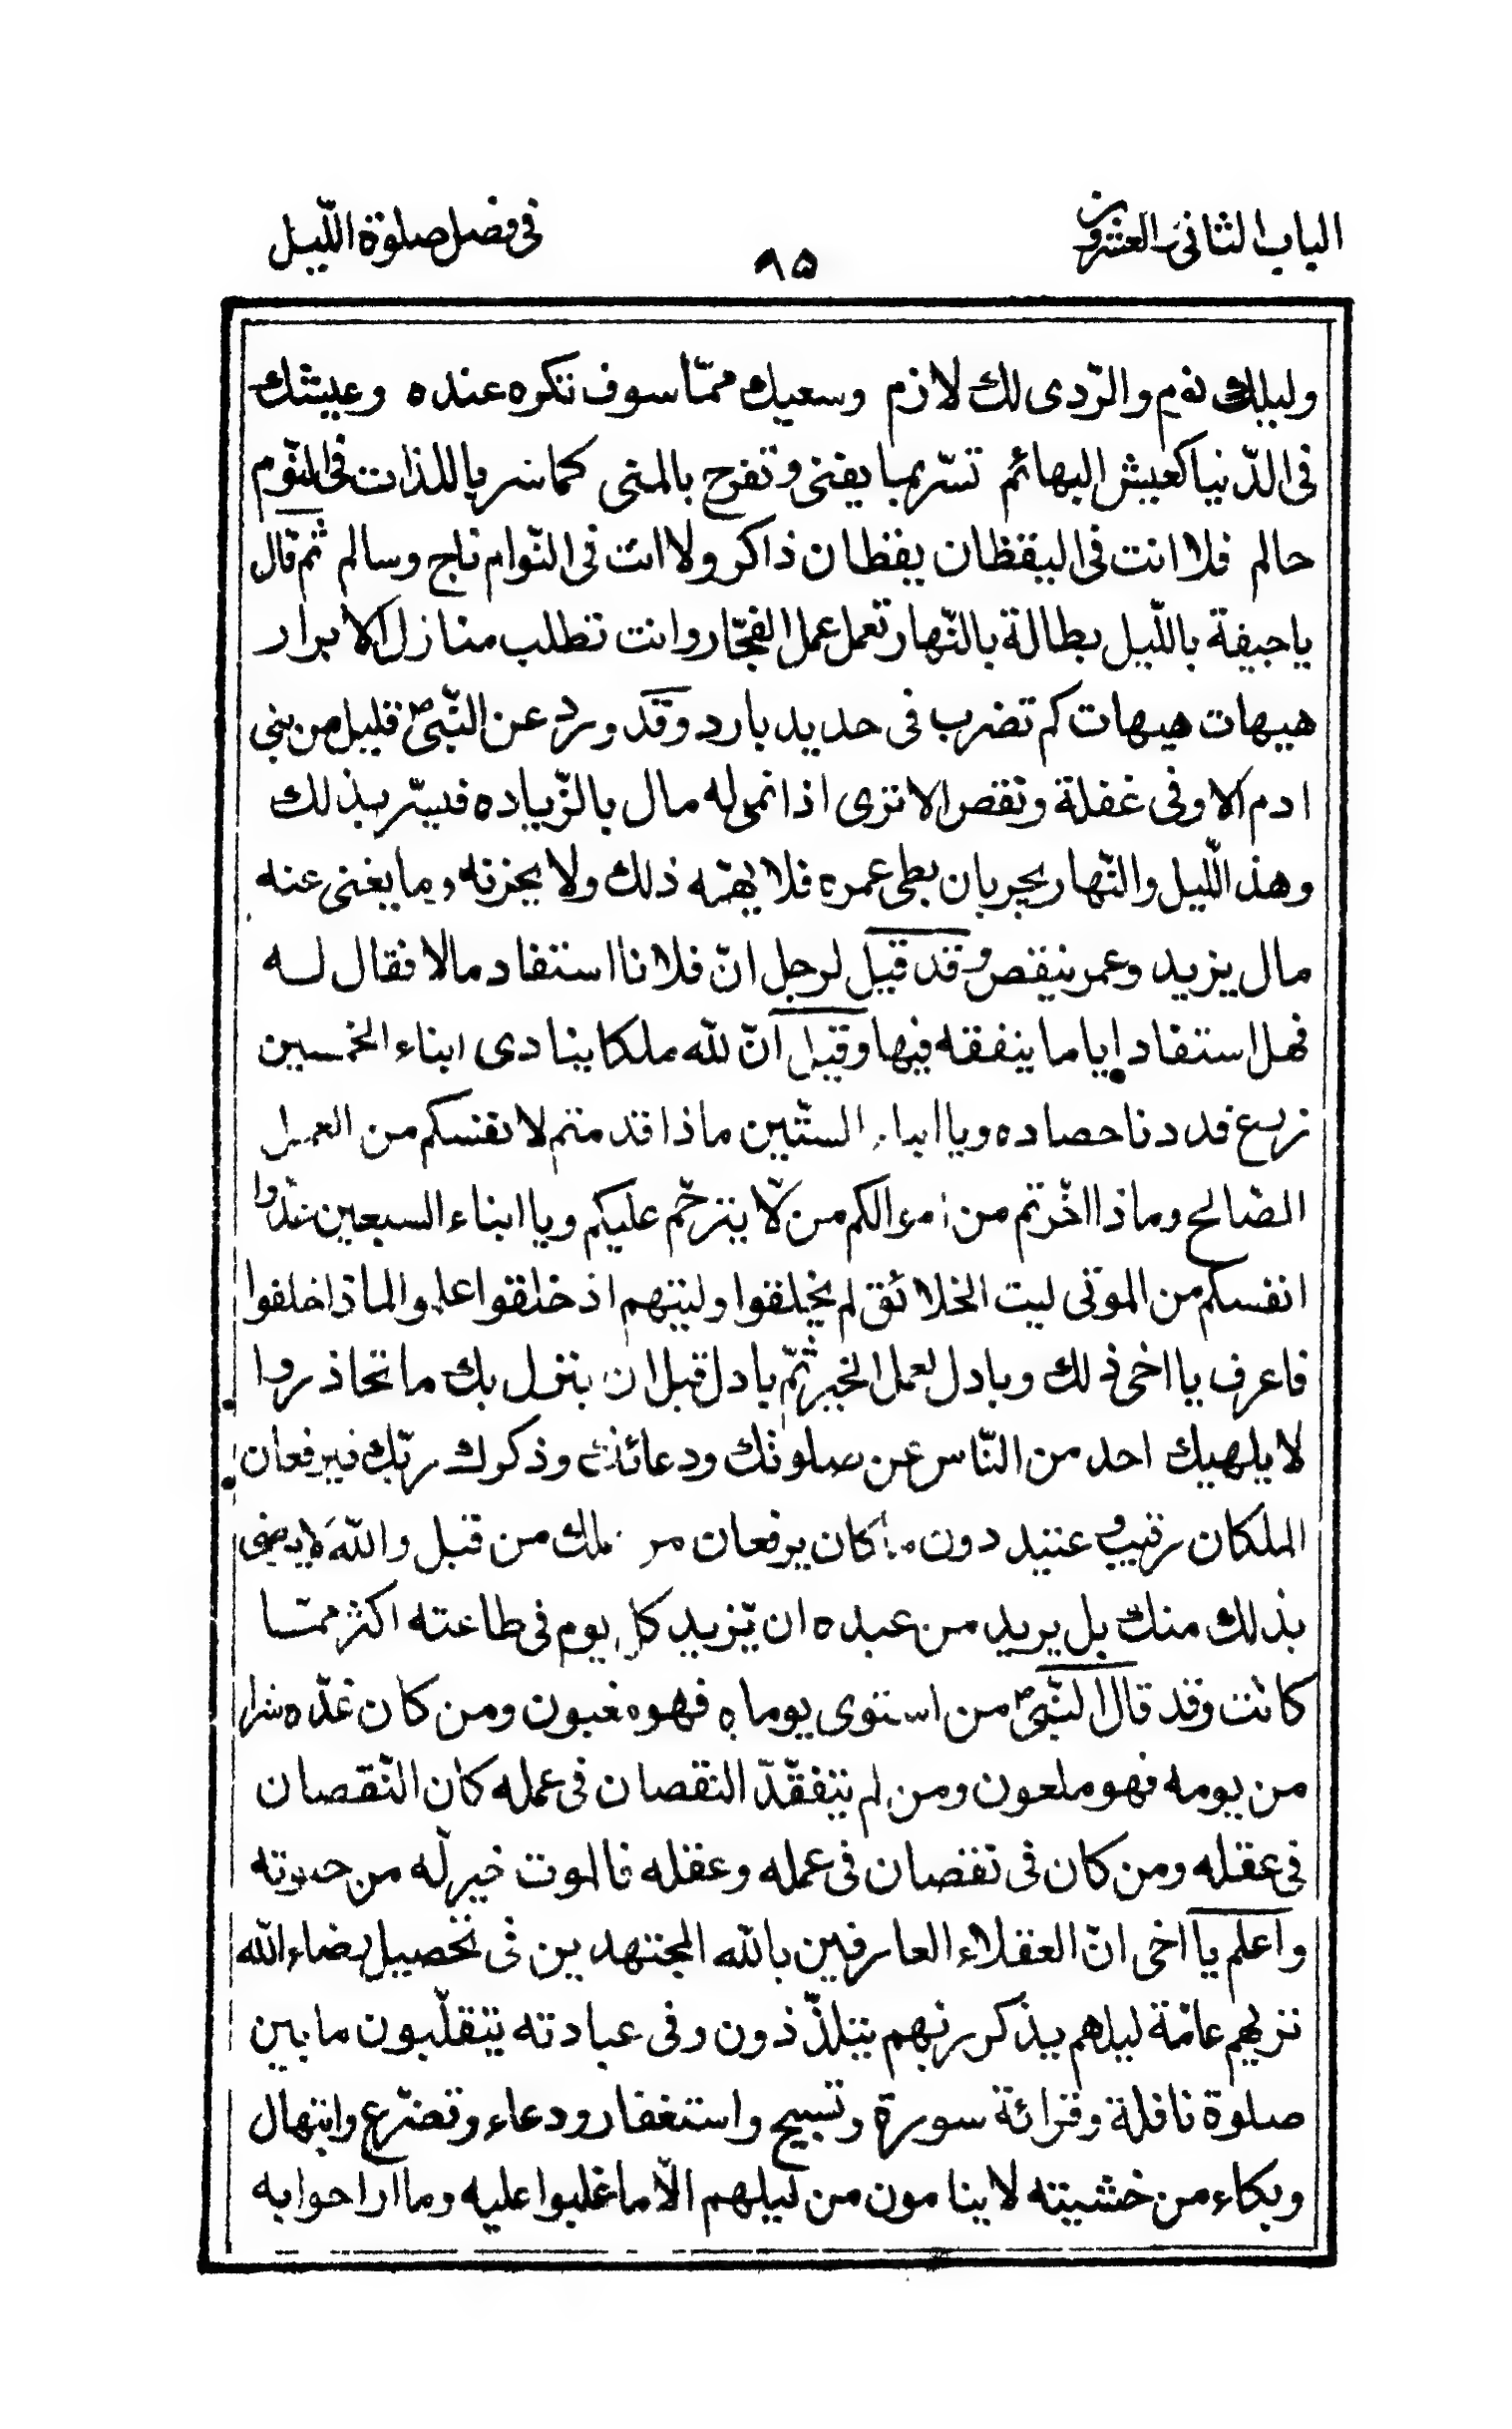 الباب الثانى والعشرون
٩٥
فى فضل صلوة اللّيل
وليلك نوم والرّدى لك لازم وسعيك ممّا سوف تنكره عنده وعيشك
فى الدّنيا كعيش البهائم تسّر بما يفنى وتفرح بالمنى كما سر باللذات فى النّوم
حالم فلا انت فى اليقظان يقظان ذاكر ولا انت فى النّوام ناج وسالم ثم قال
ياجيفة باللّيل بطالة بالنّهار تعمل عمل الفجّار وانت تطلب منازل الابرار
هيهات هيهات كم تضرب فى حديد بارد وقد ورد عن النّبىّ ص قليل من بنى
ادم الا وفى غفلة ونقص الا ترى اذا نمى له مال بالزّياده فيسّر بذلك
وهذا اللّيل والنّهار يجريان بطى عمره فلا يهمّه ذلك ولا يحزنه وما يغنى عنه
مال يزيد وعمر ينقص وقد قيل لرجل انّ فلانا استفاد مالا فقال لــه
فهل استفاد اياما ينفقه فيها وقيل انّ للّه ملكا ينادى ابناء الخمسين
زرع قد دنا حصاده ويا ابناء الستّين ماذا قدمتم لانفسكم من العمل
الصّالح وماذا اخّرتم من اموالكم من لّا يترحّم عليكم ويا ابناء السبعين عدّوا
انفسكم من الموتى ليت الخلائق لم يخلقوا وليتهم اذ خلقوا علموا لماذا خلقوا
فاعرف يا اخى ذلك وبادل لعمل الخير ثمّ بادل قبل ان ينزل بك ما تحاذر وا
لا يلهيك احد من النّاس عن صلوتك ودعائك وذكرك ربّك فيرفعان
الملكان رقيب وعتيد دون ما كان يرفعان من ذلك من قبل واللّه لا يرضى
بذلك منك بل يريد من عبده ان يّزيد كل يوم فى طاعته اكثر ممّــا
كانت وقد قال النّبىّ ص من استوى يوماه فهو مغبون ومن كان غدّه شرا
من يومه فهو ملعون ومن لم يتفقّدّ النقصان فى عمله كان النّقصان
فى عقله ومن كان فى نقصان فى عمله وعقله فالموت خير لّه من حيوته
واعلم يا اخى انّ العقلاء العارفين باللّه المجتهدين فى تحصيل رضاء اللّه
تريهم عامّة ليلهم بذكر ربّهم يتلذّذون وفى عبادته يتقلّبون ما بين
صلوة نافلة وقرائة سورة وتسبيح واستغفار ودعاء وتضرّع وابتهال
وبكاء من خشيته لا ينامون من ليلهم الّا ما غلبوا عليه وما اراحوا به